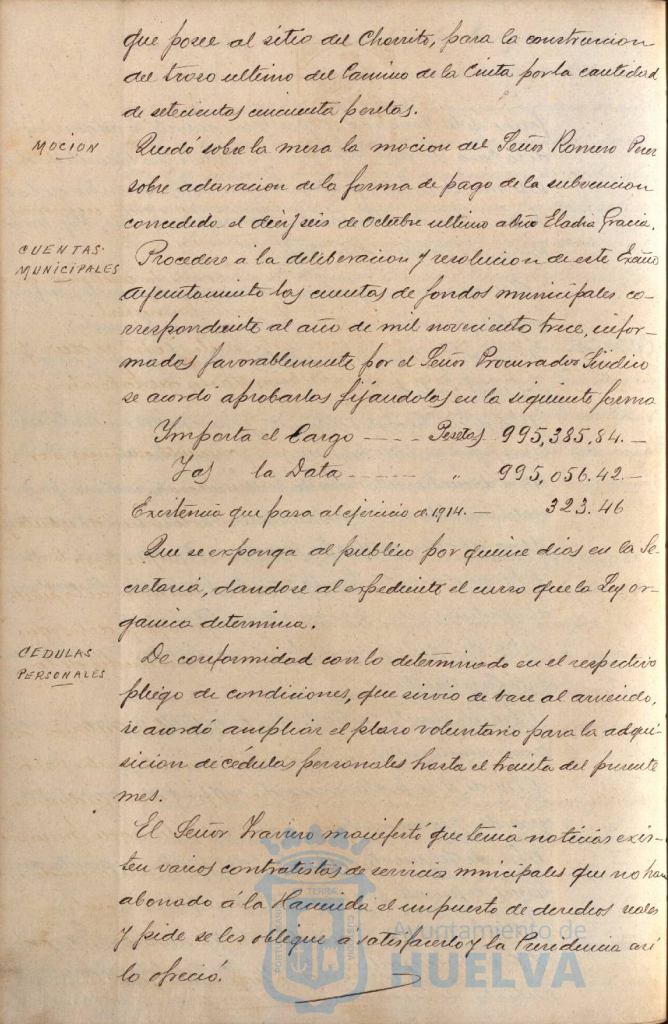 que posee al sitio del Chorrito, para la construccion
del trozo ultimo del Camino de la Cinta por la cantidad
de setecientas cincuenta pesetas.
MOCION
Quedó sobre la mesa la mocion del Señor Romero Perez
sobre aclaracion de la forma de pago de la subvencion
concedida el diez y seis de Octubre ultimo a Dña Eladia Gracia.
CUENTAS
MUNICIPALES
Procedese á la deliberacion y resolucion de este Excmo
Ayuntamiento las cuentas de fondos municipales co-
rrespondiente al año de mil noveciento trece, infor-
madas favorablemente por el Señor Procurador Síndico
se acordó aprobarlas fijándolas en la siguiente forma
Importa el Cargo Pesetas 995,385,84.-
la Data " 995,056.42-
Existencia que pasa al ejercicio de 1914.- 323.46
Que se exponga al publico por quince dias en la Se-
cretaria, dandose al expediente el curso que la Ley or-
ganica determina.
CEDULAS
PERSONALES
De conformidad con lo determinado en el respectivo
pliego de condiciones, que sirvio de base al arriendo,
se acordó ampliar el plazo voluntario para la adqui-
sicion de cédulas personales hasta el treinta del presente
mes.
El Señor manifestó que tenia noticias exis-
ten varios contratistas de servicios municipales que no han
abonado á la Hacienda el impuesto de derechos reales
y pide se les obligue a satisfacerlo y la Presidencia asi
lo ofreció.
Ayuntamiento de
HUELVA